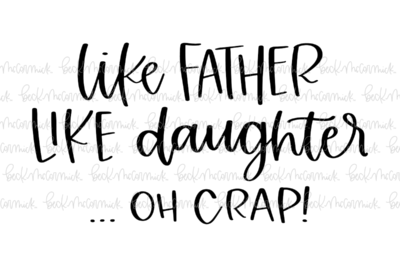 like FATHER
LIKE daughter
... OH CRAP!